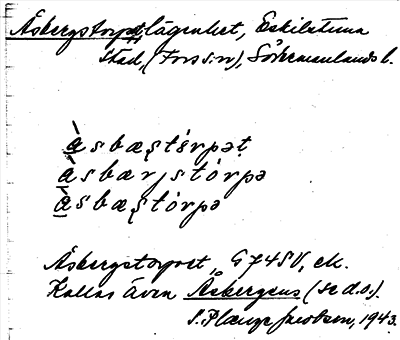 Åsbergstorpet, lägenhet, Eskilstuna
stad, (Fors sn), Södermanlands l.
àsbæʂtórpət
àsbærʂtórpə
àsbæʂtórpə
Åsbergstorpet, G 74 SV, ek.
Kallas även Åsbergens (se d.o.).
S. Plænge Jacobson, 1943.